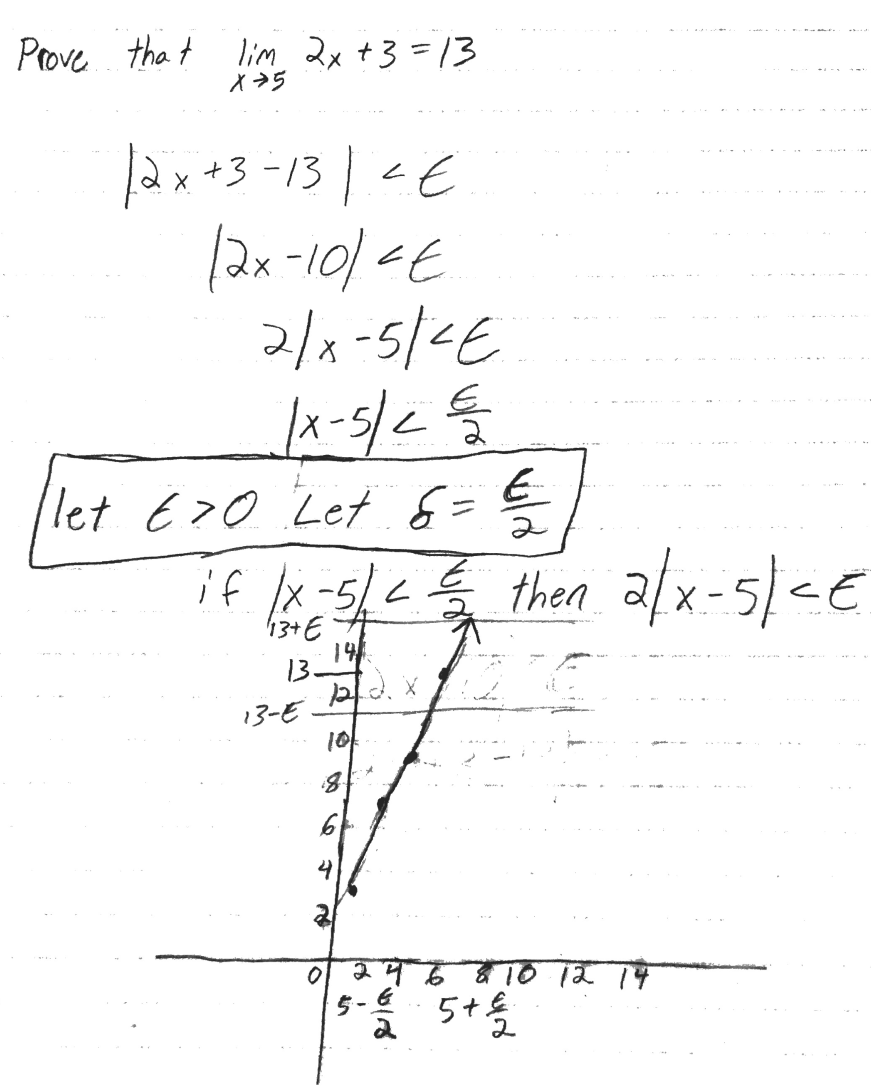 Prove that lim 2x + 3 = 13
x→5
|2x + 3 - 13| < ϵ
|2x - 10| < ϵ
2|x - 5| < ϵ
|x - 5| < ϵ/2
let ϵ > 0 Let δ = ϵ/2
if |x - 5| < ϵ/2 then 2|x - 5| < ϵ
13+ϵ
14
13
12
13-ϵ
10
8
6
4
2
0 2 4 6 8 10 12 14
5-ϵ/2 5+ϵ/2